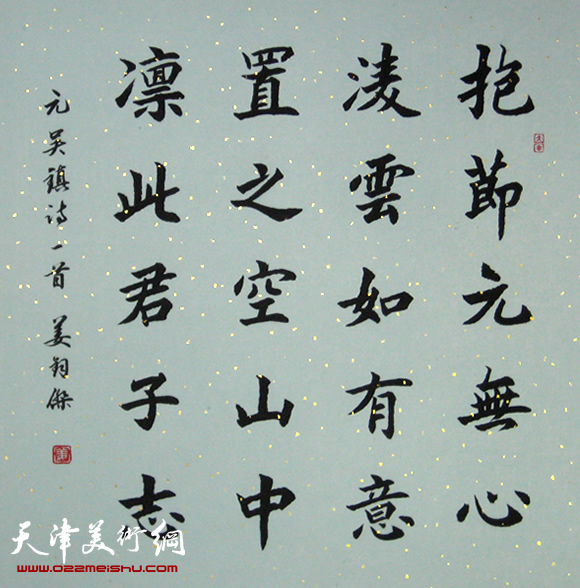 抱節元無心
淩雲如有意
置之空山中
凛此君子志
元吴鎮诗一首 姜钧傑
天津美術網
www.022meishu.com